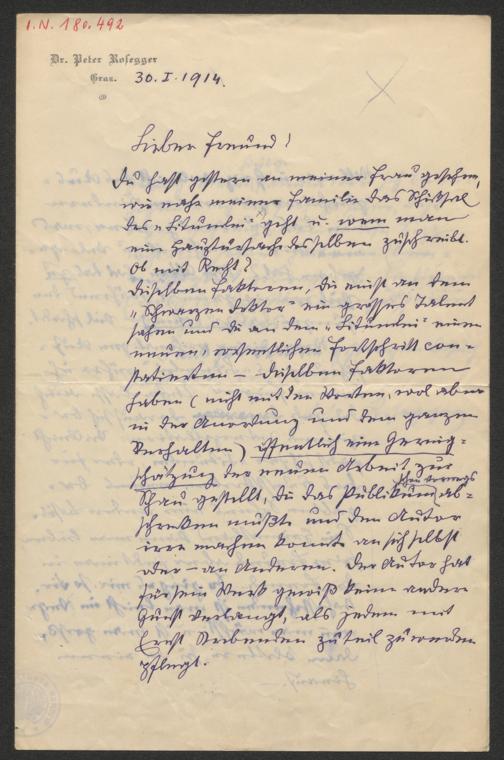 I.N. 180.492
Dr. Peter Rosegger
Graz. 30.I.1914.
Lieber Freund!
Du hast gestern an meiner Frau gesehen,
wie nahe meiner Familie das Schicksal
des „ " geht u. wem man
eine Hauptursache desselben zuschreibt.
Ob mit Recht?
Dieselben Faktoren, die einst an dem
„Schwarzen Doktor" ein grosses Talent
sahen und die an dem „ " einen
neuen, wesentlichen Fortschritt con-
statierten – dieselben Faktoren
haben (nicht mit den Worten, wol aber
in der Anordnung und dem ganzen
Verhalten) öffentlich eine Gering-
schätzung der neuen Arbeit zur
Schau gestellt, die das Publikum schon vorwegs ab-
schrecken mußte und den Autor
irre machen konnte an sich selbst
oder – an Anderen. Der Autor hat
für sein Werk gewiß keine andere
Gunst verlangt, als jedem mit
Ernst Strebenden zuteil zu werden
pflegt.